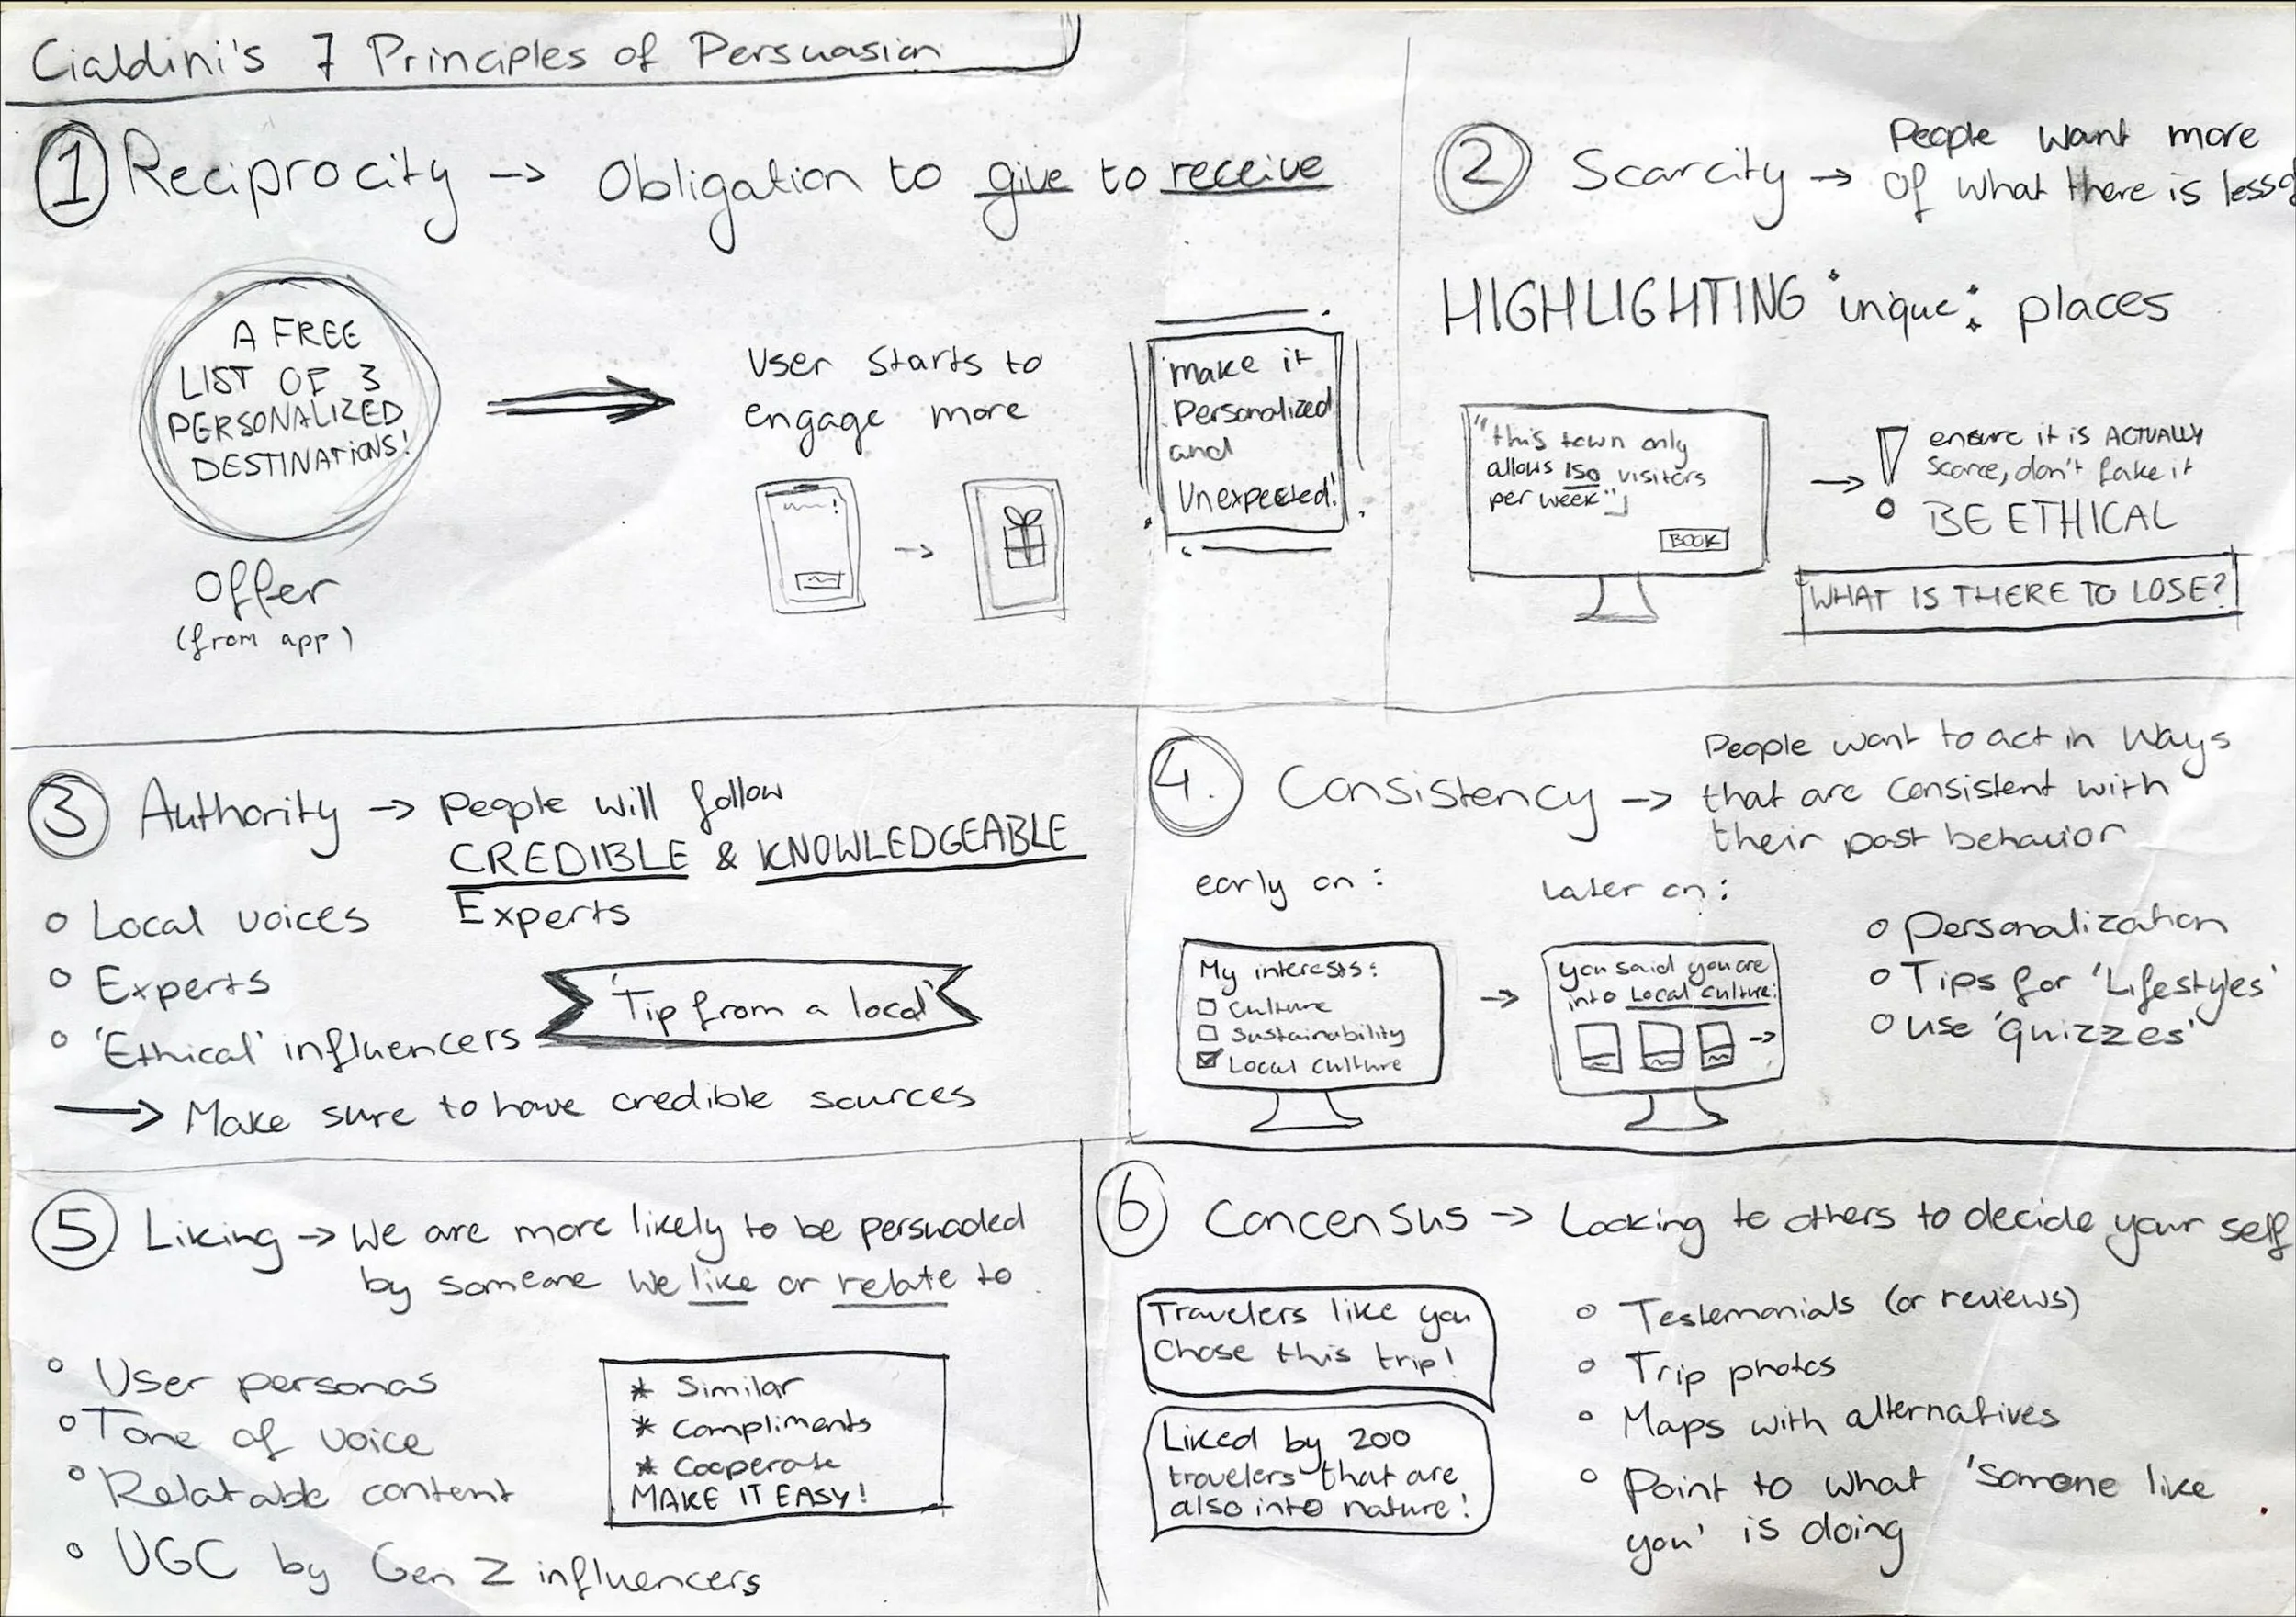 Cialdini's 7 Principles of Persuasion
1 Reciprocity → Obligation to give to receive
A FREE
LIST OF 3
PERSONALIZED
DESTINATIONS!
Offer
(from app)
User starts to
engage more
make it
Personalized
and
Unexpected!
2 Scarcity → People want more
of what there is less o
HIGHLIGHTING 'unique' places
"this town only
allows 150 visitors
per week"
BOOK
→ ! ensure it is ACTUALLY
scarce, don't fake it
BE ETHICAL
WHAT IS THERE TO LOSE?
3 Authority → People will follow
CREDIBLE & KNOWLEDGEABLE
Experts
o Local voices
o Experts
o 'Ethical' influencers
'Tip from a local'
→ Make sure to have credible sources
4. Consistency → People want to act in ways
that are consistent with
their past behavior
early on:
My interests:
Culture
Sustainability
Local culture
later on:
you said you are
into Local culture:
o Personalization
o Tips for 'Lifestyles'
o use 'quizzes'
5 Liking → We are more likely to be persuaded
by someone we like or relate to
o User personas
o Tone of voice
o Relatable content
o UGC by Gen Z influencers
* Similar
* Compliments
* Cooperate
MAKE IT EASY!
6 Concensus → Looking to others to decide your self
Travelers like you
Chose this trip!
Liked by 200
travelers that are
also into nature!
o Testemonials (or reviews)
o Trip photos
o Maps with alternatives
o Point to what 'Someone like
you' is doing